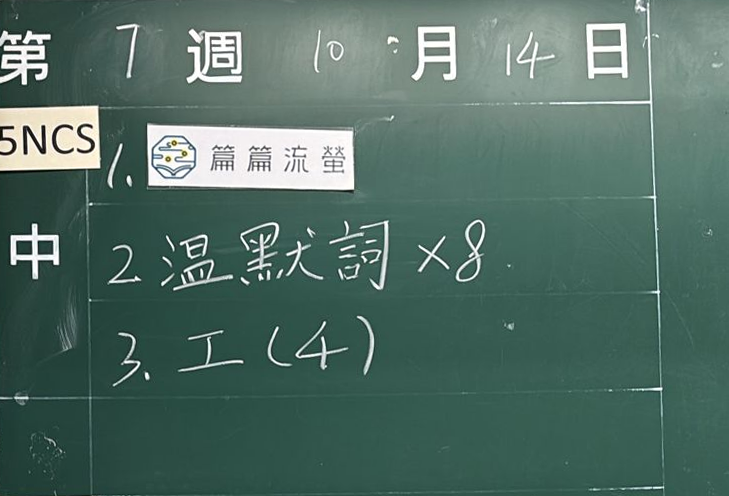 第 7 週 10 月 14 日
5NCS
1. 篇篇流螢
中
2. 温默詞 ×8
3. 工(4)